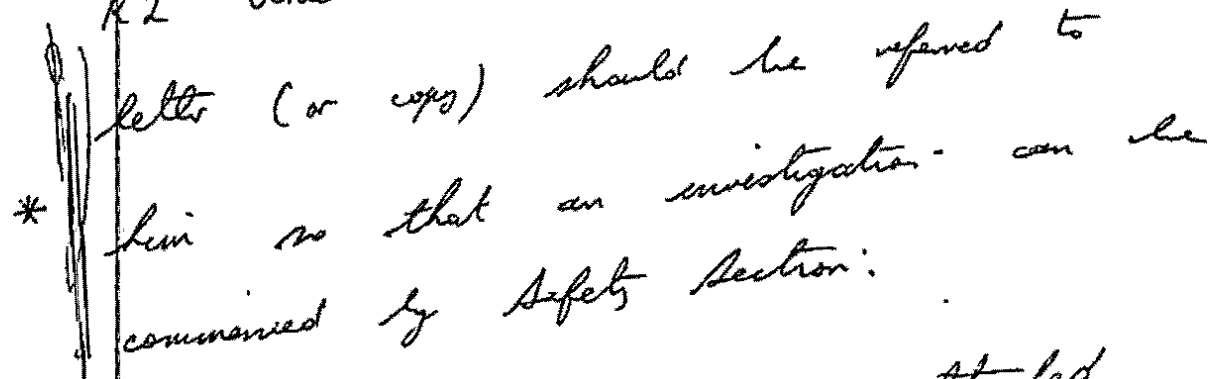 R2
letter (or copy) should be referred to
* him so that an investigation can be
commenced by Safety Section.